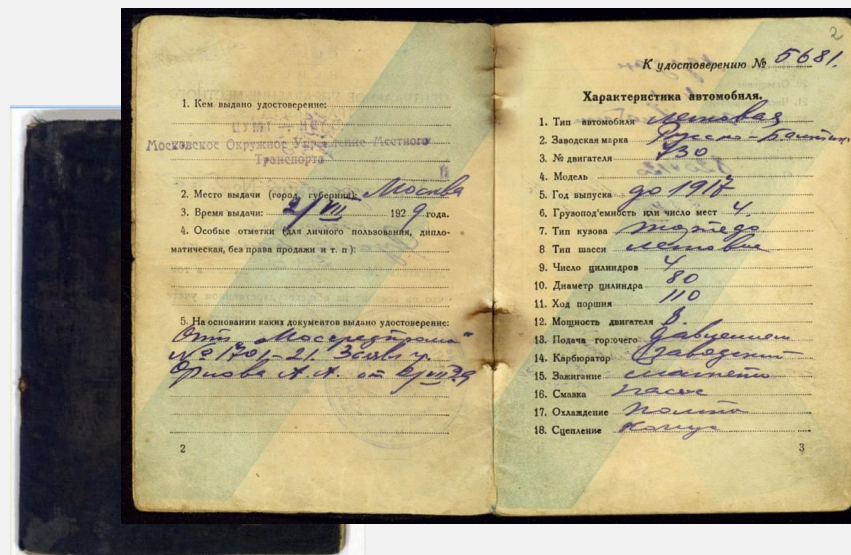 1. Кем выдано удостоверение:
ЦУМТ — НКТ
Московское Окружное Управление Местного
Транспорта
2. Место выдачи (город, губерния): Москва
3. Время выдачи: 2/VII 1929 года.
4. Особые отметки (для личного пользования, дипло-
матическая, без права продажи и т. п):
5. На основании каких документов выдано удостоверение:
№ 1701-21.
Орлова А. А. от
2
2
К удостоверению № 5681.
Характеристика автомобиля.
1. Тип автомобиля легковая
2. Заводская марка Руссо-Балтик
3. № двигателя 730
4. Модель
5. Год выпуска до 1917
6. Грузопод'емность или число мест 4.
7. Тип кузова торпедо
8 Тип шасси легковое
9. Число цилиндров 4
10. Диаметр цилиндра 80
11. Ход поршня 110
12. Мощность двигателя
13. Подача горючего давлением
14. Карбюратор заводский
15. Зажигание магнето
16. Смазка насос
17. Охлаждение помпа
18. Сцепление конус
3